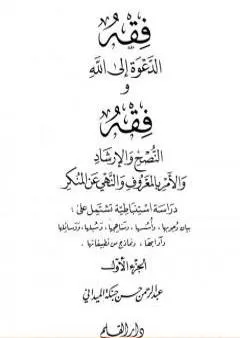 فِقْهُ
الدَّعْوَةِ إِلَى اللَّهِ
وَ
فِقْهُ
النُّصْحِ وَالإِرْشَادِ
وَالأَمْرِ بِالمَعْرُوفِ وَالنَّهْيِ عَنِ المُنْكَرِ
دِرَاسَة اسْتِنبَاطِيَّة تَشْتَمِل عَلى :
بيان وجوبها، وأسسها، ومناهجها، وسبلها، ووسائلها
وآدابها، ونماذج من تطبيقاتها .
الجزء الأول
عبد الرحمن حسن حبنكة الميداني
دار القلم